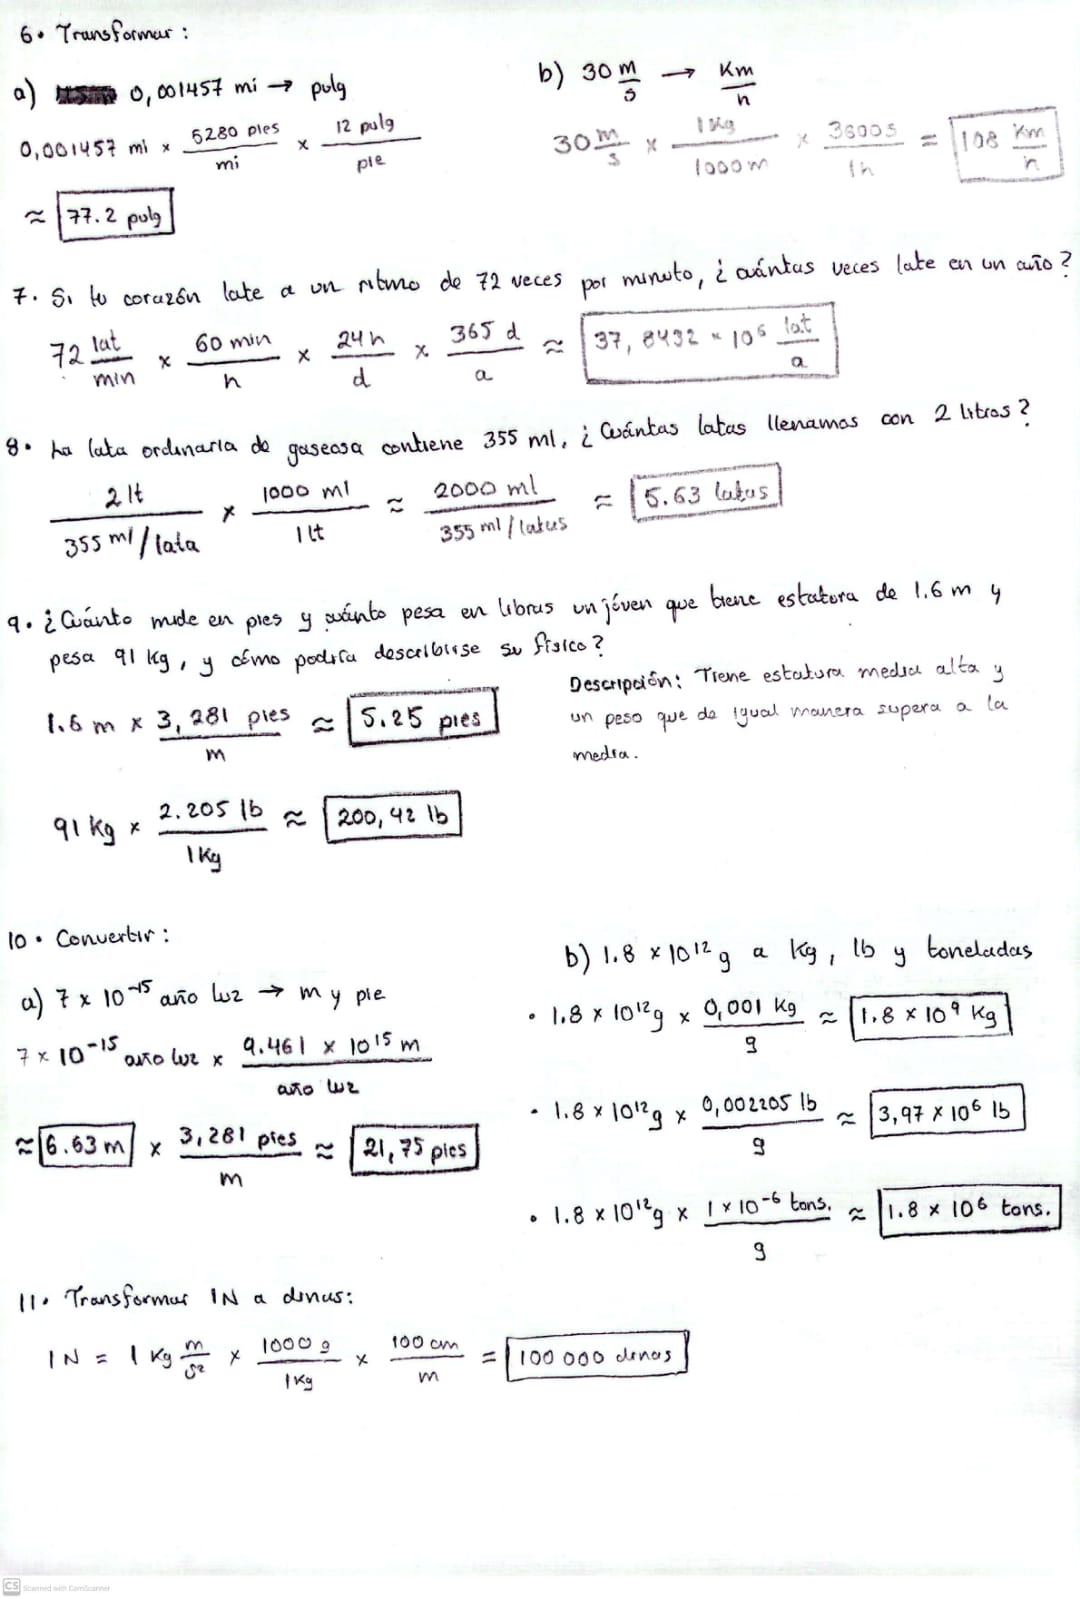 6. Transformar:
a) 0,001457 mi → pulg
0,001457 mi x 5280 pies / mi x 12 pulg / pie
≈ 77.2 pulg
b) 30 m/s → Km/h
30 m/s x 1 Kg / 1000 m x 3600 s / 1 h = 108 Km/h
7. Si tu corazón late a un ritmo de 72 veces por minuto, ¿ cuántas veces late en un año?
72 lat/min x 60 min / h x 24 h / d x 365 d / a ≈ 37, 8432 x 10⁶ lat/a
8. La lata ordinaria de gaseosa contiene 355 ml. ¿ Cuántas latas llenamos con 2 litros?
2 lt / 355 ml/lata x 1000 ml / 1 lt ≈ 2000 ml / 355 ml/latas ≈ 5.63 latas
9. ¿ Cuánto mide en pies y cuánto pesa en libras un jóven que tiene estatura de 1.6 m y
pesa 91 Kg, y cómo podría describirse su físico?
1.6 m x 3, 281 pies / m ≈ 5.25 pies
91 Kg x 2.205 lb / 1 Kg ≈ 200,42 lb
Descripción: Tiene estatura media alta y
un peso que de igual manera supera a la
media.
10. Convertir:
a) 7 x 10⁻¹⁵ año luz → m y pie
7 x 10⁻¹⁵ año luz x 9.461 x 10¹⁵ m / año luz
≈ 6.63 m x 3,281 pies / m ≈ 21,75 pies
b) 1.8 x 10¹² g a Kg, lb y toneladas
• 1.8 x 10¹² g x 0,001 Kg / g ≈ 1.8 x 10⁹ Kg
• 1.8 x 10¹² g x 0,002205 lb / g ≈ 3,97 x 10⁶ lb
• 1.8 x 10¹² g x 1 x 10⁻⁶ tons. / g ≈ 1.8 x 10⁶ tons.
11. Transformar 1N a dinas:
1N = 1 Kg m/s² x 1000 g / 1 Kg x 100 cm / m = 100 000 dinas
CS Scanned with CamScanner